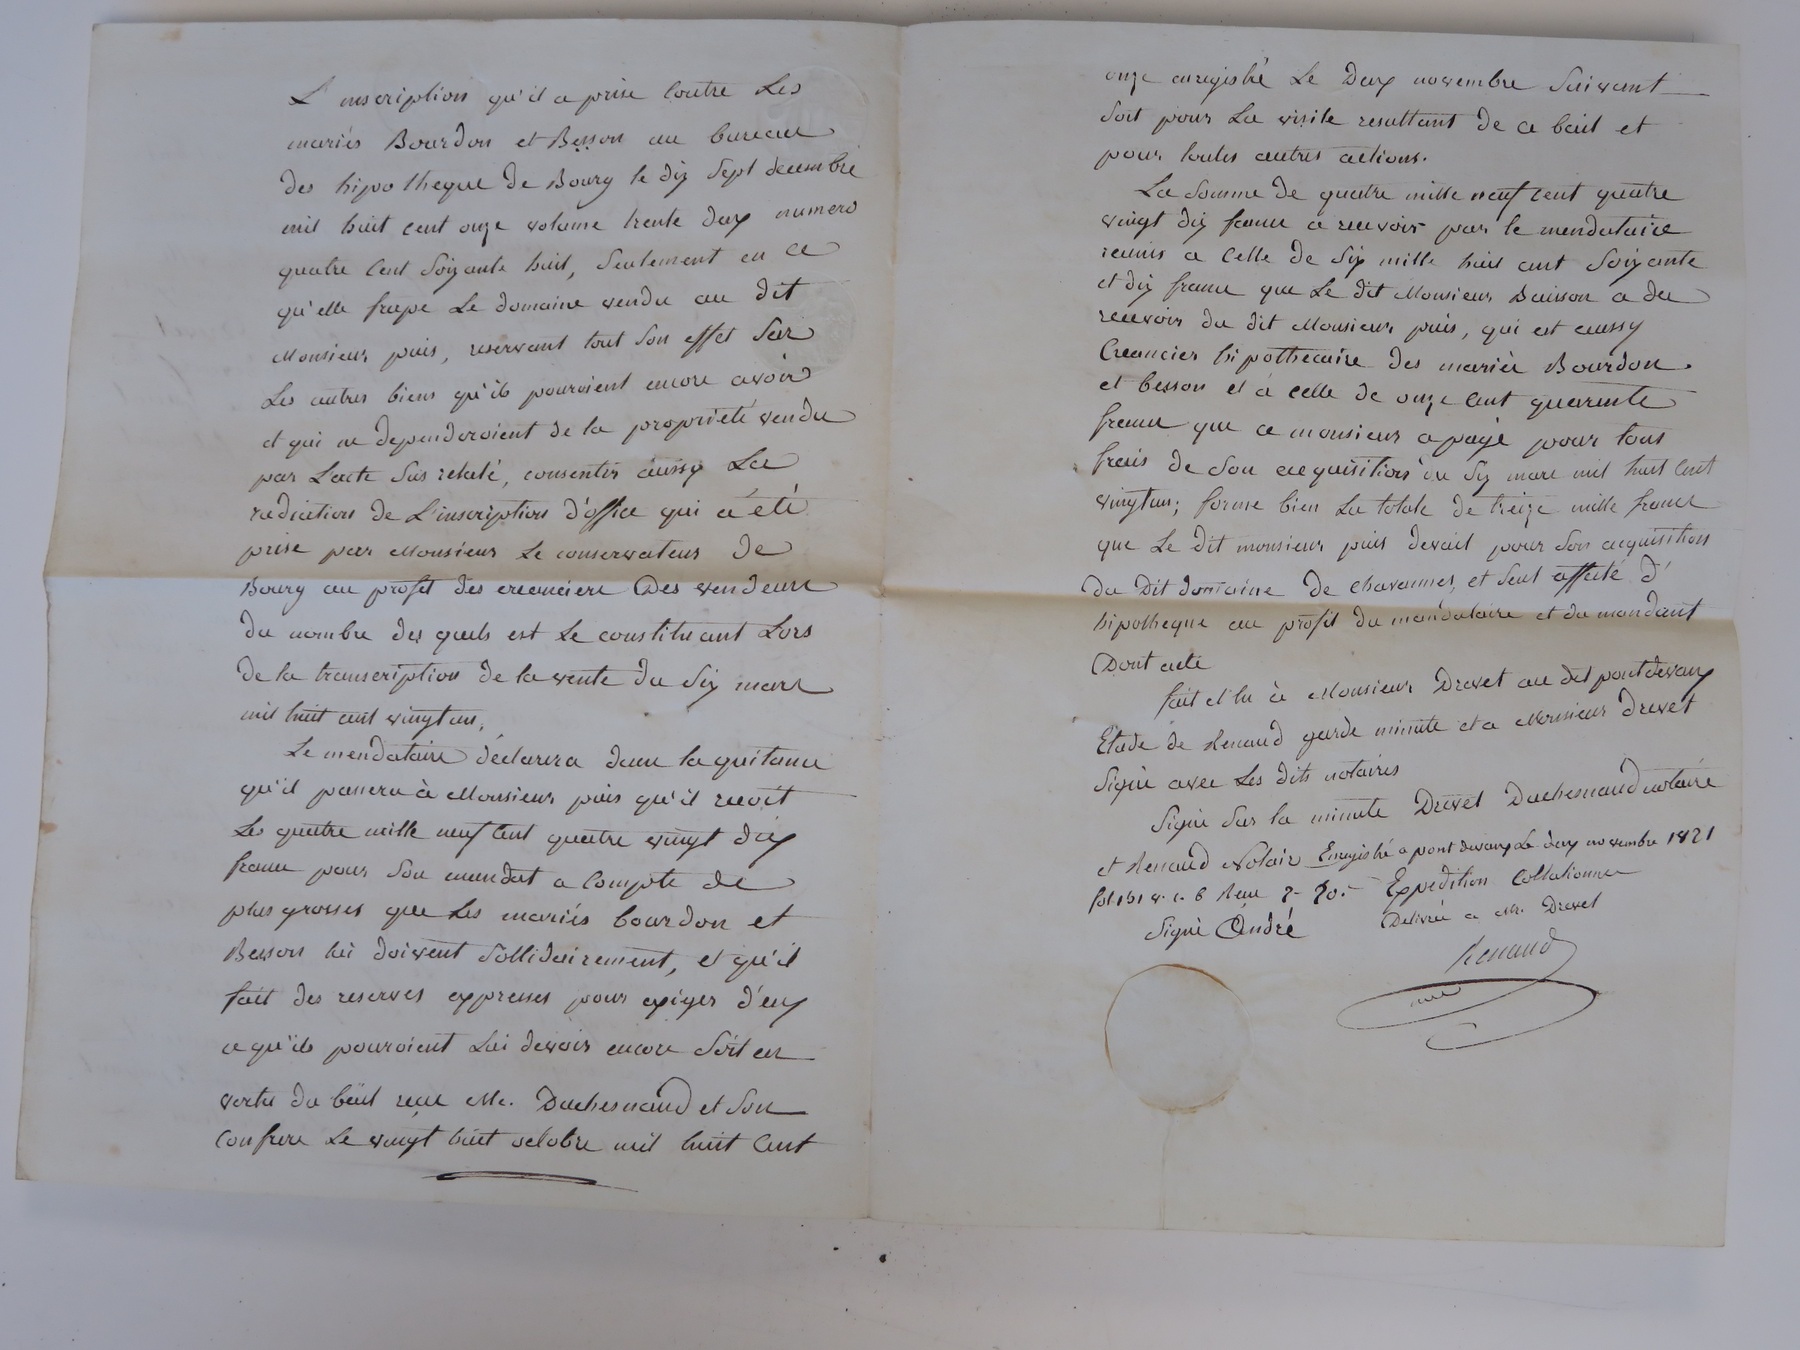 L'inscription qu'il a prise Contre Les
mariés Bourdon et Besson au bureau
des hipotheque de Bourg le dix Sept decembre
mil huit cent onze volume trente deux numero
quatre Cent Soixante huit, Seulement en ce
qu'elle frape Le domaine vendu au dit
Monsieur puis, reservant tout Son effet Sur
Les autres biens qu'ils pouroient encore avoir
et qui ne dependeroient de la proprieté vendue
par L'acte Sus relaté, consentir aussy La
radiation de L'inscription d'office qui a été
prise par Monsieur Le conservateur de
Bourg au profit des creanciers Des vendeurs
du nombre des quels est Le constituant Lors
de la transcription de la vente du Six mars
mil huit cent vingt un,
Le mendataire déclarera dans la quitance
qu'il passera à Monsieur puis qu'il recoit
Les quatre mille neuf Cent quatre vingt dix
francs pour Son mendat a Compte de
plus grosses que Les mariés bourdon et
Besson lui doivent Sollidairement, et qu'il
fait des reserves expresses pour exiger d'eux
ce qu'ils pouroient Lui devoir encore Soit en
vertu du bail recu Me. Duchesnaud et Son
Confrere Le vingt huit octobre mil huit Cent
onze enregistré Le Deux novembre Suivant
Soit pour La visite resultant de ce bail et
pour toutes autres actions.
La Somme de quatre mille neuf cent quatre
vingt dix francs a recevoir par le mendataire
reunis a Celle de Six mille huit cent Soixante
et dix francs que Le dit Monsieur Buisson a du
recevoir du dit Monsieur puis, qui est aussy
Creancier hipothecaire des mariés Bourdon
et besson et à celle de onze Cent quarente
francs que ce monsieur a payé pour tous
frais de Son acquisition du Six mars mil huit Cent
vingt un; forme bien La totale de treize mille francs
que Le dit monsieur puis devait pour Son acquisition
du Dit domaine de Chavannes, et Seul affecté d'
hipotheque au profit du mandataire et du mandant
Dont acte
fait et lu à Monsieur Drevet au dit pontdevaux
Etude de Renaud garde minute et a Monsieur Drevet
Signé avec Les dits notaires
Signé Sur la minute Drevet Duchesnaud notaire
et Renaud Notaire Enregistré a pont devaux Le deux novembre 1821
fol 151 v. c. 6 Recu Expedition Collationnee
Signé André Delivrée a Mr. Drevet
Renaud